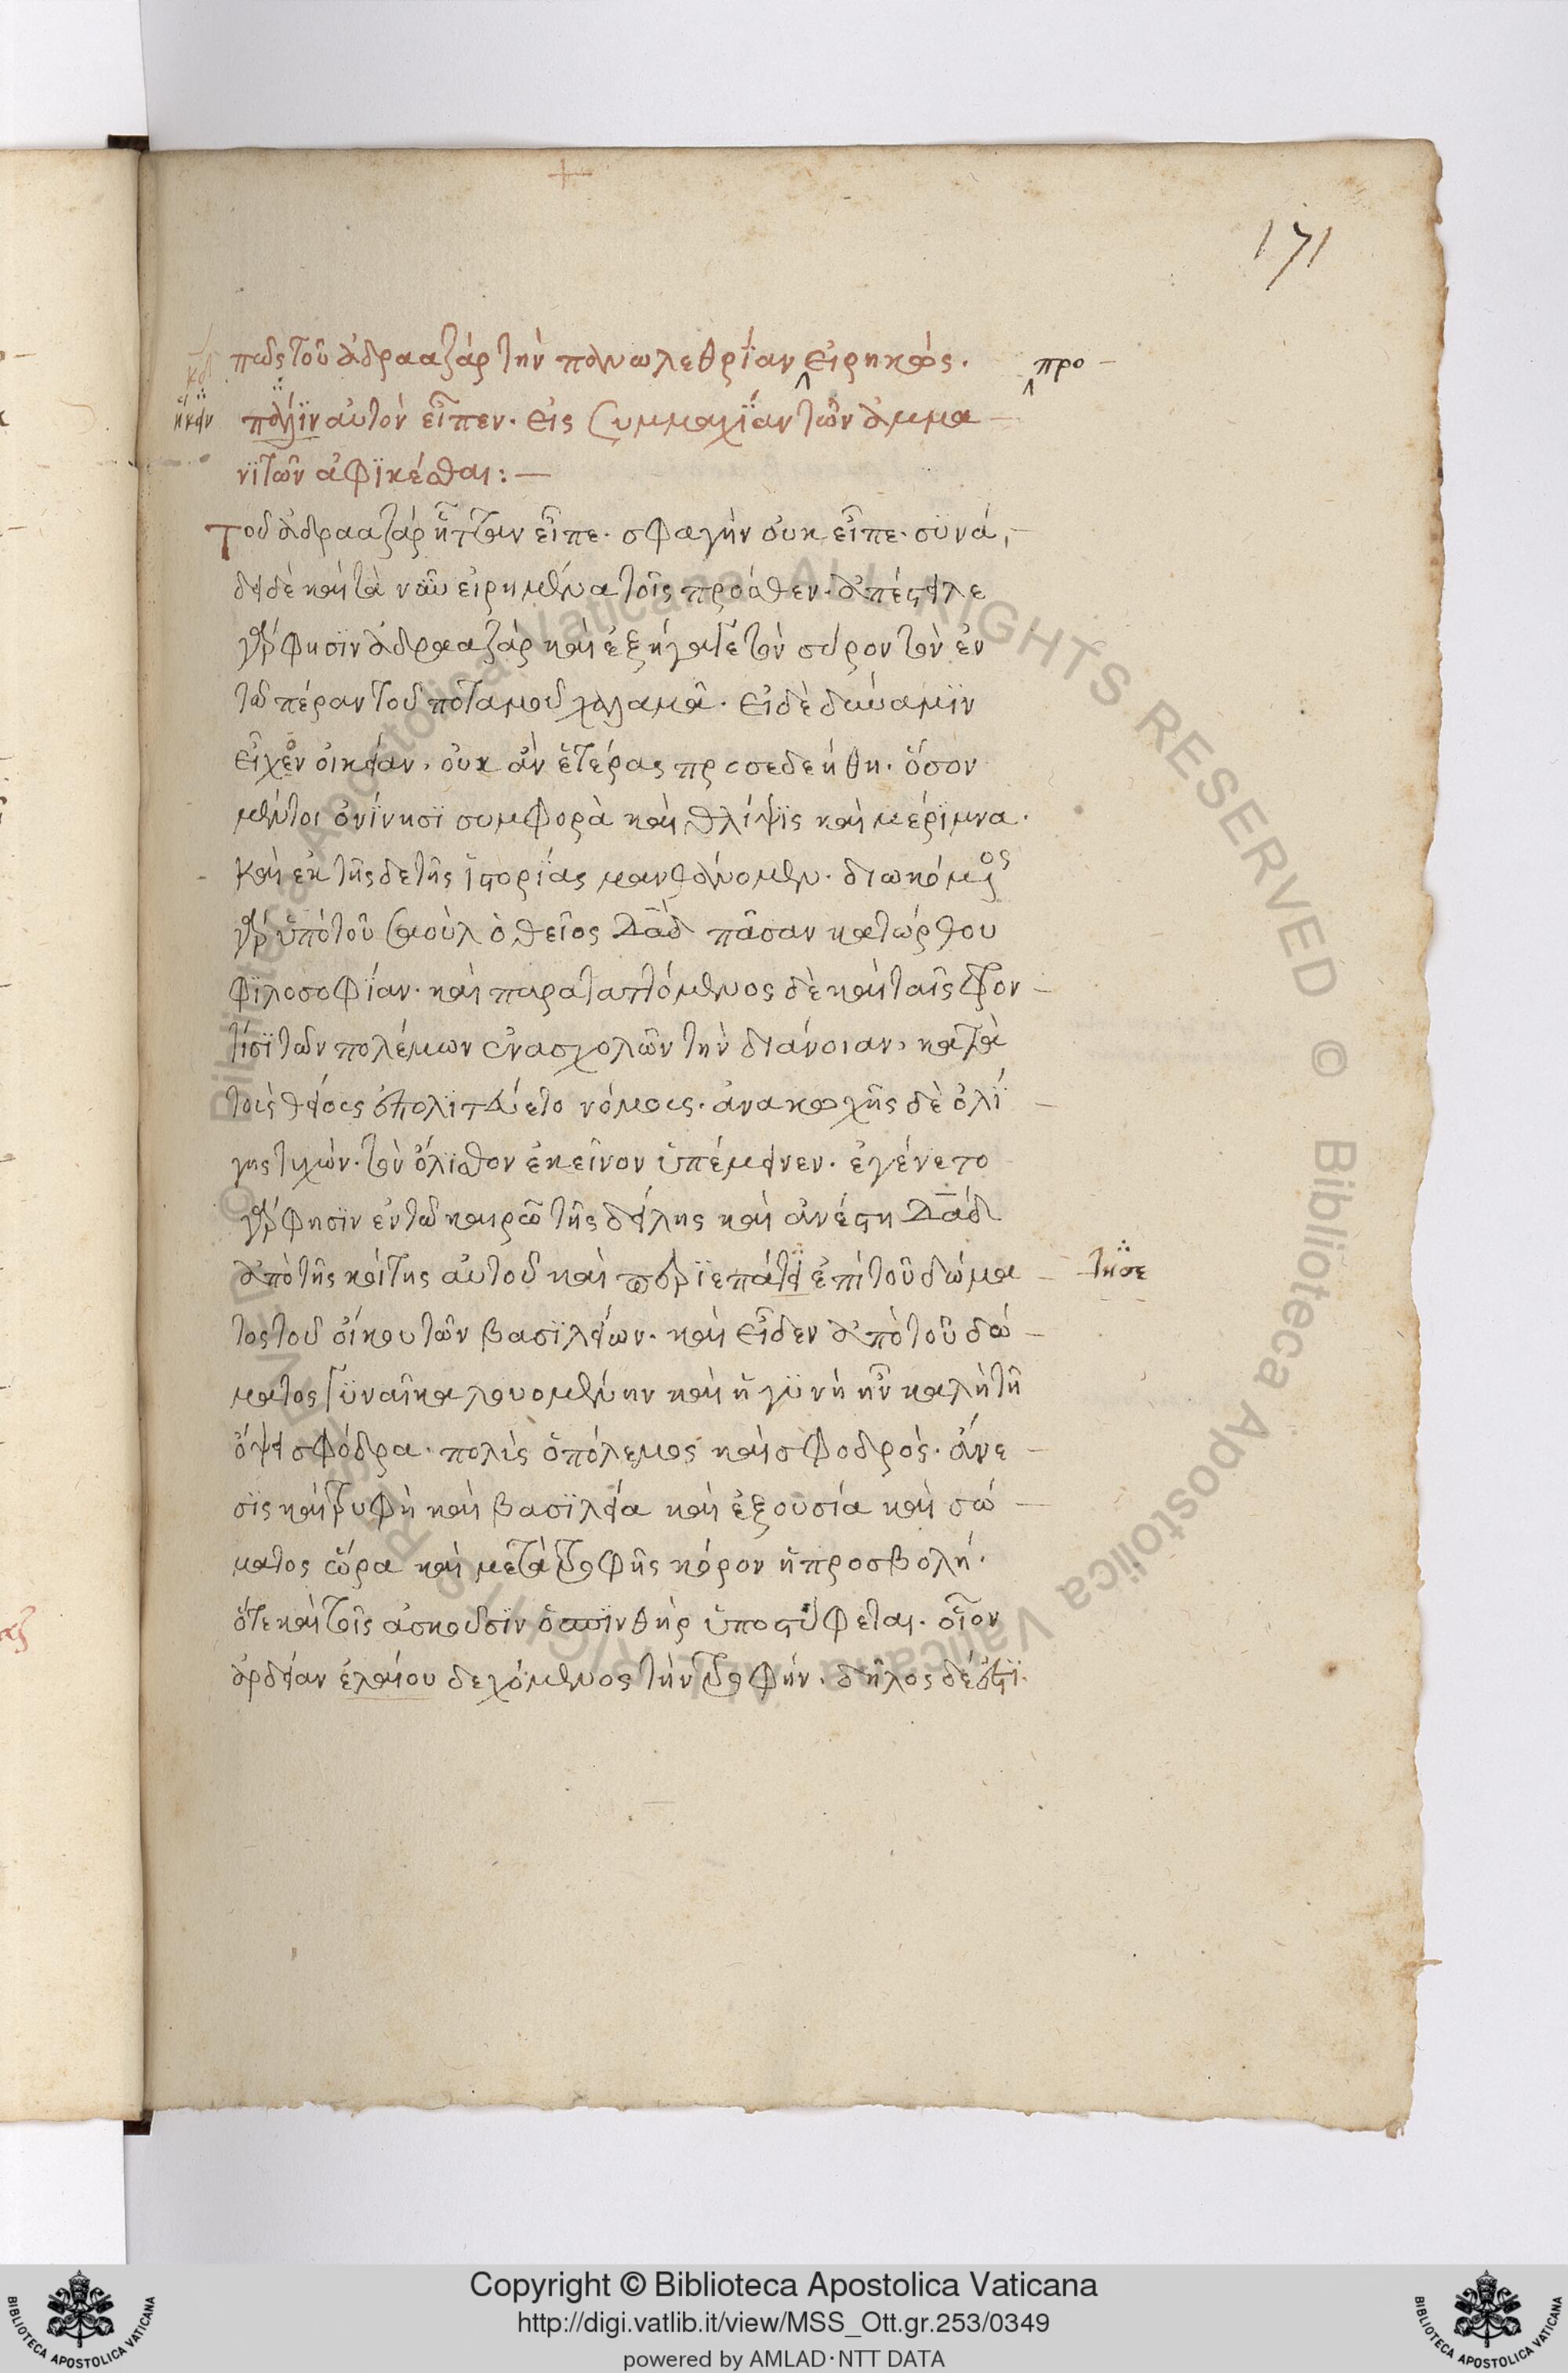 171
πῶς τοῦ ἀδρααζὰρ τὴν πανωλεθρΐαν εἰρηκὼς. προ
κδ
ηκεν πάλϊν αὐτὸν εἶπεν. εἰς συμμαχΐαν τῶν ἀμμα
νϊτῶν ἀφϊκέσθαι:—
Τοῦ ἀδρααζὰρ ἧτταν εἶπε. σφαγὴν οὐκ εἶπε. συνά,
δει δὲ καὶ τὰ νῦν εἰρημένα τοῖς πρόσθεν. ἀπέστειλε
γάρ φησϊν ἀδρααζὰρ καὶ ἐξήγαγε τὸν σύρον τὸν ἐν
τῶ πέραν τοῦ ποταμοῦ χαλαμᾶ. εἰ δὲ δύναμϊν
εἶχεν οἰκείαν, οὐκ ἂν ἑτέρας προσεδεήθη. ὅσον
μέντοι ὀνίνησϊ συμφορὰ καὶ θλίψϊς καὶ μέριμνα.
καὶ ἐκ τῆσδε τῆς ἱστορίας μανθάνομεν. διωκόμενος
γὰρ ὑπὸ τοῦ σαοὺλ ὁ θεῖος Δᾱδ πᾶσαν κατώρθου
φϊλοσοφΐαν. καὶ παραταττόμενος δὲ καὶ ταῖς φρον
τίσϊ τῶν πολέμων ἐνασχολῶν τὴν διάνοιαν, κατὰ
τοὺς θείους ἐπολιτεύετο νόμους. ἀνακωχῆς δὲ ὀλί
γης τυχὼν. τὸν ὄλισθον ἐκεῖνον ὑπέμεινεν. ἐγένετο
γάρ φησϊν ἐν τῶ καιρῶ τῆς δείλης καὶ ἀνέστη Δᾱδ
ἀπὸ τῆς κοίτης αὐτοῦ καὶ περϊεπάτει ἐπὶ τοῦ δώμα τησε
τος τοῦ οἴκου τῶν βασϊλείων. καὶ εἶδεν ἀπὸ τοῦ δώ
ματος γυναῖκα λουομένην καὶ ἡ γυνὴ ἦν καλὴ τῆ
ὄψει σφόδρα. πολὺς ὁ πόλεμος καὶ σφοδρὸς. ἄνε
σϊς καὶ τρυφὴ καὶ βασϊλεία καὶ ἐξουσία καὶ σώ
ματος ὥρα καὶ μετὰ τροφῆς κόρον ἡ προσβολή.
ὅτε καὶ τοῖς ἀσκοῦσϊν ὁ σπϊνθὴρ ὑποτύφεται. οἷον
ἀρδείαν ἐλαίου δεχόμενος τὴν τροφήν. δῆλος δέ ἐστϊ.
Copyright © Biblioteca Apostolica Vaticana
http://digi.vatlib.it/view/MSS_Ott.gr.253/0349
powered by AMLAD·NTT DATA